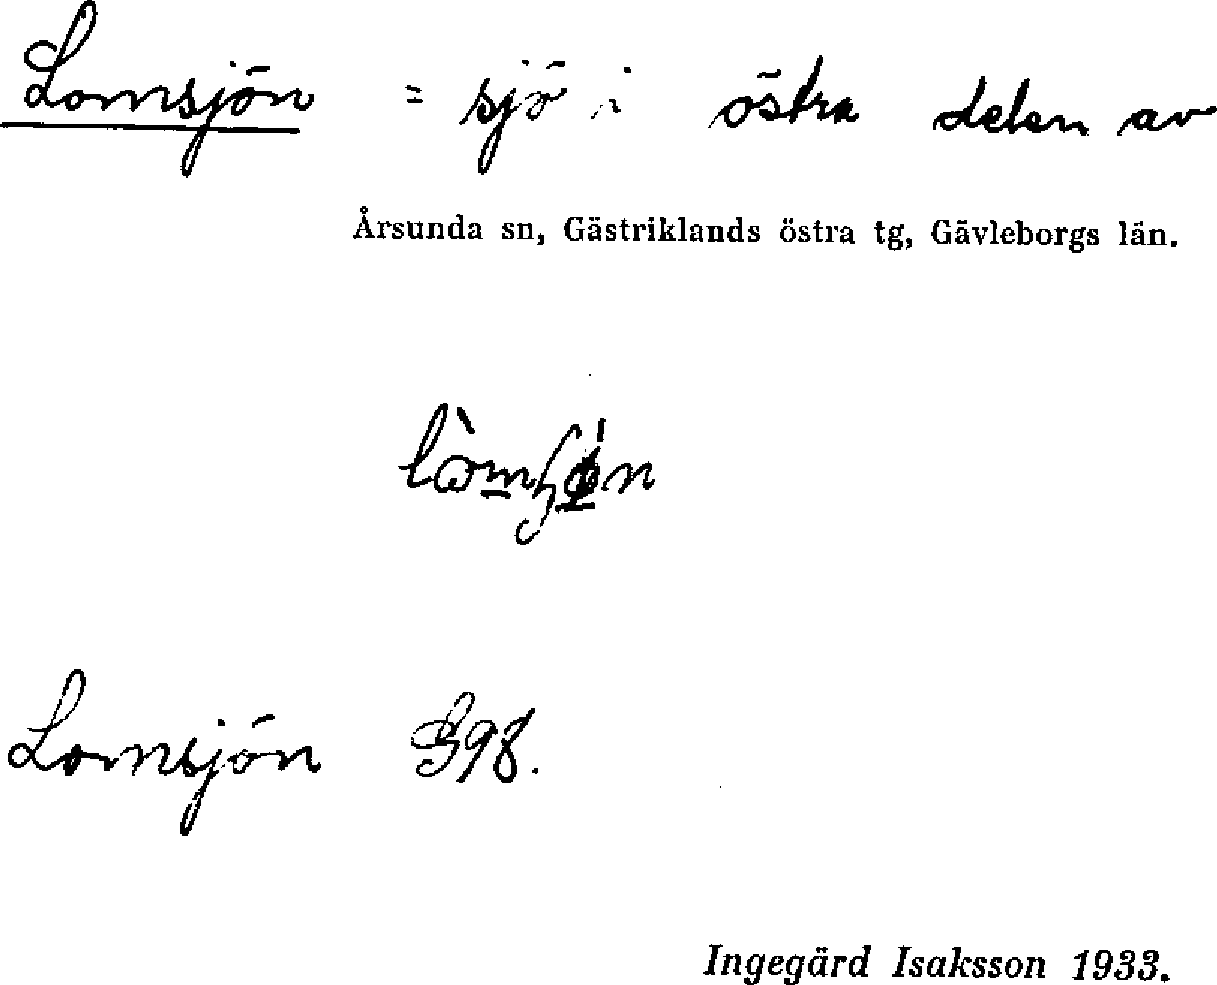 Lomsjön = sjö i östra delen av
Årsunda sn, Gästriklands östra tg, Gävleborgs län.
Lomsjön G98.
Ingegärd Isaksson 1933.